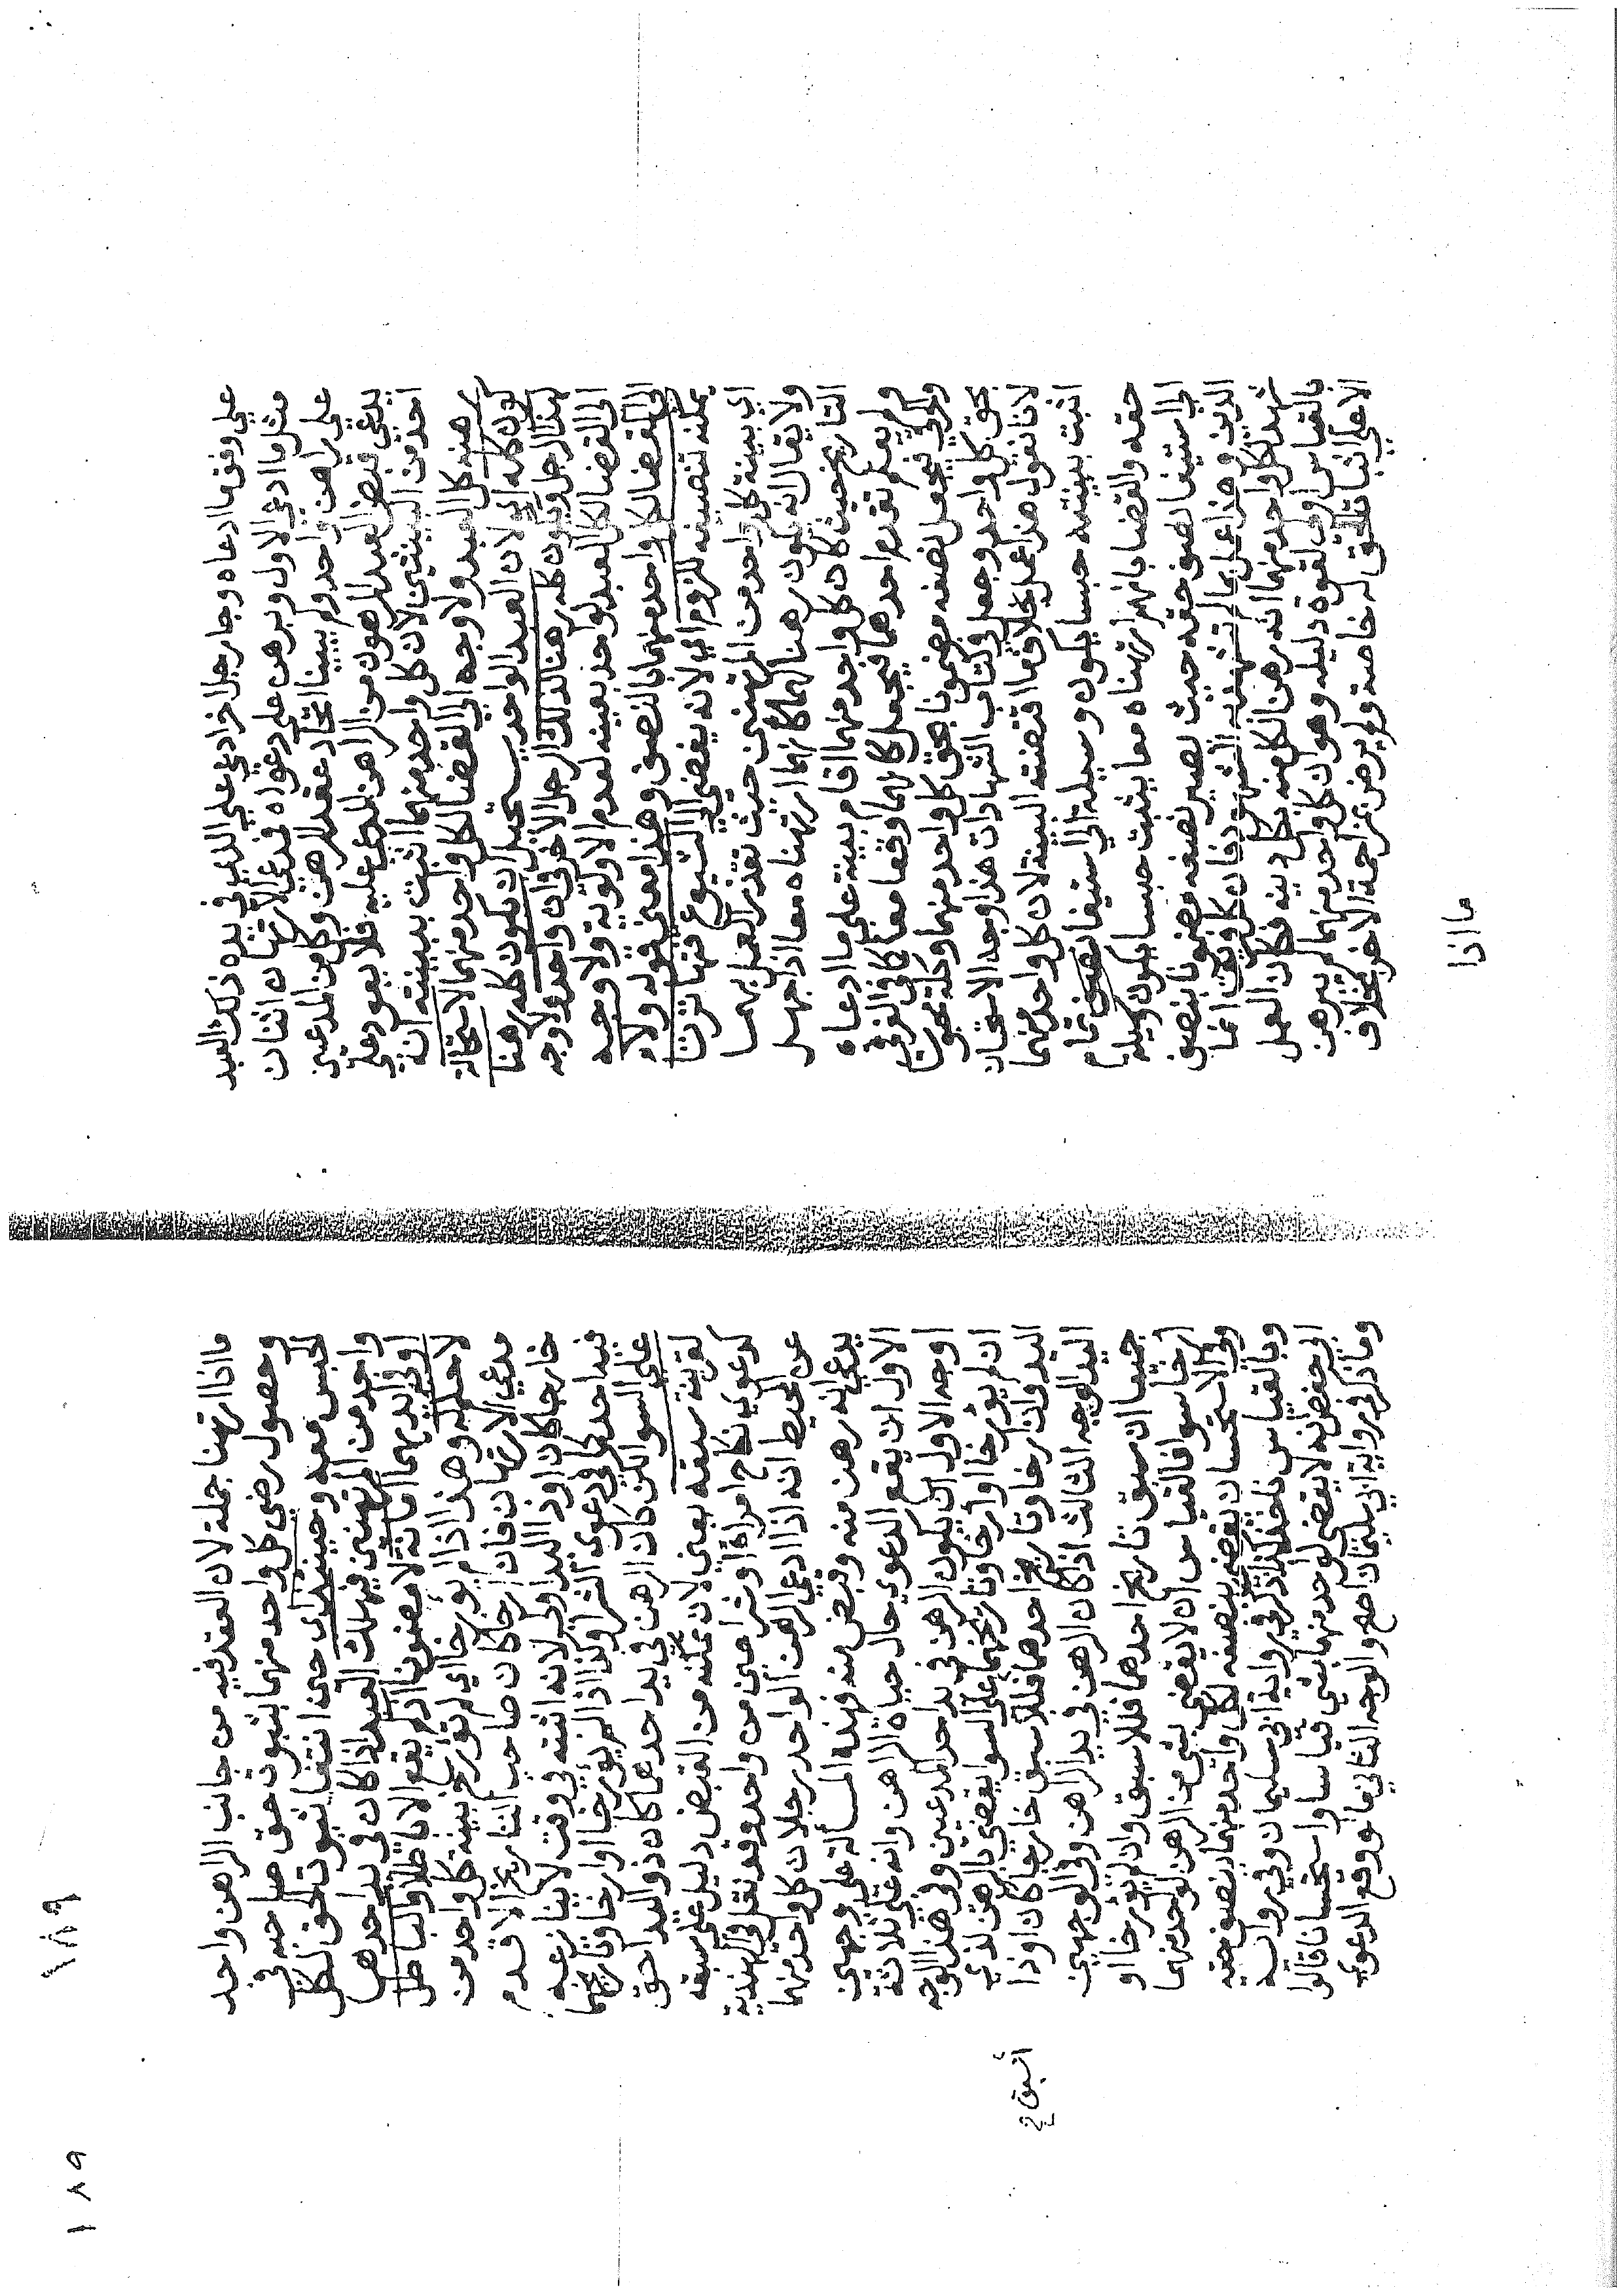 علي وفق ما ادعاه وجا رجل اخر ادعي علي الذي في يده ذلك العبد
مثل ما ادعي الاول وبرهن علي دعواه فمدعي الارتهان اثنان
علي راهن واحد ولم يبينا اتحاد عقد الرهن وكل من المدعيين
يدعي قبض العبد المرهون من الراهن المدعي عليه فلا يعود علي
احد من البينتين لان كل واحد منهما اثبت ببينته ان
رهنه كل العبد ولا وجه الي القضا لكل واحد منهما لاستحالة
كون كله اي لان العبد الواحد يستحيل ان يكون كله رهنا
لهذا الرجل ويكون كله رهنا لذلك الرجل الاخر في ان واحد ولا وجه
الي القضا لكل العبد لواحد بعينه لعدم الاولوية ولا وجه
الي القضا لكل واحد منهما بالنصف وهذا معني قوله ولا
يمكنه تنصيفه للزوم اي لانه يفضي الي الشيوع فتهاترتا
اي بينة كل واحد من المرتهنين حيث تعذر العمل بهما
ولا يقال انه يكون رهنا لهما كانهما ارتهناه معا اذا جهل
التاريخ حيث كان كل واحد منهما اقام بينة علي ما ادعاه
ولم يعلم تقدم احدهما فيجعل كانهما وقعا معا كما في الغرقي
والحرقي فيجعل نصفه مضمونا بحق كل واحد منهما وكله محبو
بحق كل واحد وجعل في كتاب الشهادات هذا وجه الاستحسان
لانا نقول هذا عمل بخلاف ما اقتضته البينة لان كل واحد منهما
اثبت ببينته حبسا يكون وسيلة الي استيفا نصف تمام
حقه والقضا بانهما ارتهناه معا يثبت حبسا يكون وسيلة
الي استيفا نصف حقه حيث يصير نصفه مضمونا بنصف
الدين وهذا عمل بما لم تشهد به الشهود فان كل وبينة انما
شهد لكل واحد منهما انه رهن الكل منه بكل دينه فكان العمل
بالقياس اولي لقوة دليله وهو ان كل واحد منهما لم يبرهن
الا علي اثبات الحق له خاصة ولم يرض بمزاحمة الاخر بخلاف
ما اذا
ما اذا ارتهنا جملة لان العقد فيه من جانب الراهن واحد
وحصول رضي كل واحد منهما بثبوت حق صاحبه في
الحبس معه وحينيذ اي حين انتفا ثبوت الحق لكل
واحد من المرتهنين فيهلك العبد اذا كان في يد احدهما
او في يديهما امانة لا مضمونا اذ لم يقع الا باطلا والباطل
لا حكم له وهذا اذا لم يورخا اي لم تؤرخ بينة كل واحد من
مدعي الارتهان فان ارخا كان صاحب التاريخ الاقدم
خارجا كان او ذا اليد اولي لانه اثبته في وقت لا ينازعه
فيه احد كما في دعوي الشرا وكذا اذا لم يؤرخا او ارخا وتاريخهما
علي السوا لكن كان الرهن في يد احدهما كان ذو اليد احق
لقرينة سبقه يعني لان تمكنه من القبض دليل علي سبقه
كدعوي نكاح امراة او شرا عين من واحد وقد نقل في الهندية
عن المحيط انه اذا ادعي الرهن الواحد رجلان كل واحد منهما
يدعي انه رهن منه وقبض منه فهذه المسالة علي وجهين
الاول ان يقع الدعوي حال حياة الراهن وانه علي ثلاثة
اوجه الاول ان يكون الرهن في يد احد المدعيين وفي هذا الوجه
ان لم يؤرخا او ارخا وتاريخهما علي السوا يقضي بالرهن لذي
اليد وان ارخا وتاريخ احدهما فللاسبق خارجا كان او ذا
اليد الوجه الثالث اذا كان الرهن في يد الراهن وفي الوجهين
جميعا ان سبق تاريخ احدهما فللاسبق وان لم يؤرخا او
ارخا سوا فالقياس ان لا يقضي بشي من الرهن لواحد منهما
وفي الاستحسان يقضي بنصفه لكل واحد منهما بنصف حقه
وبالقياس ناخذ كذا ذكر في رواية ابي سليمان وفي رواية
ابي حفص انه لا يقضي لواحد منهما بشي قياسا واستحسانا قالوا
وما ذكر في رواية ابي سليمان اصح والوجه الثاني ما لو وقع الدعوي
اسبق ح
١٨٩
١٨٩